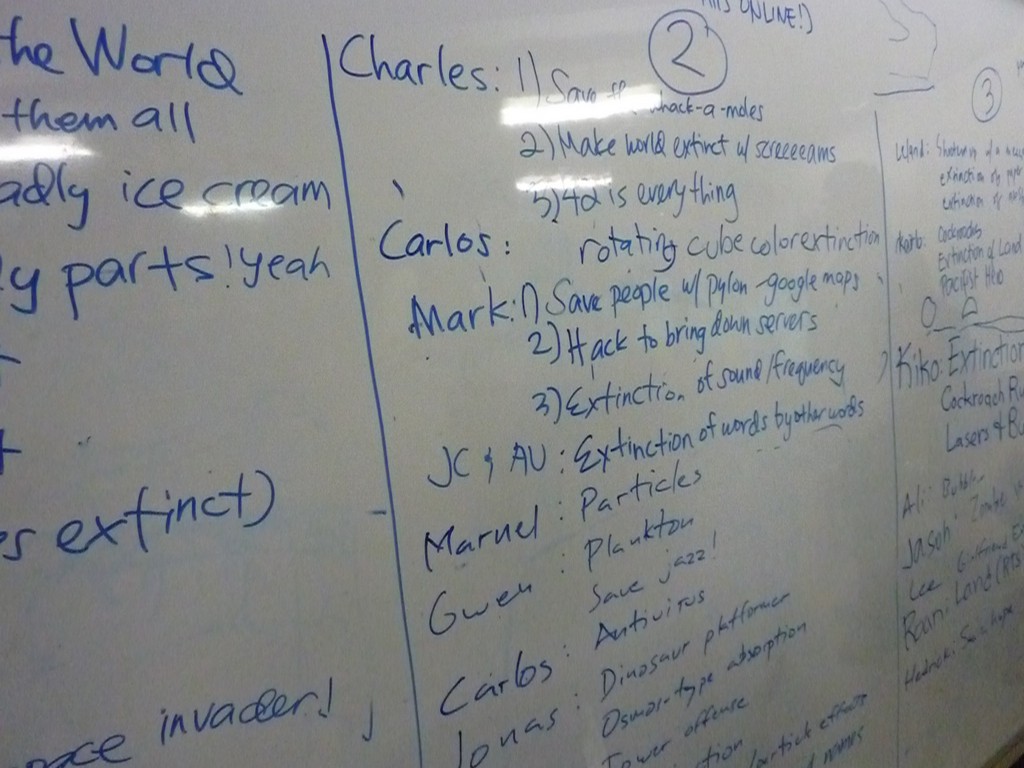 the World
them all
ice cream
parts! yeah
extinct)
invader!
ONLINE!)
2
Charles: 1) Save whack-a-moles
2) Make world extinct w/ screeeeams
3) 42 is everything
Carlos: rotating cube color extinction
Mark: 1) Save people w/ pylon - google maps
2) Hack to bring down servers
3) Extinction of sound/frequency
JC & AU: Extinction of words by other words
Marnel: Particles
Gwen: Plankton
Save jazz!
Carlos: Antivirus
Jonas: Dinosaur platformer
Osmos-type absorption
Tower offense
particle effects
names
3
extinction of
extinction of
Cockroaches
Extinction of Land
Pacifist
Kiko: Extinction
Cockroach
Lasers &
Ali:
Jason: Zombie
Lee
Land (RTS